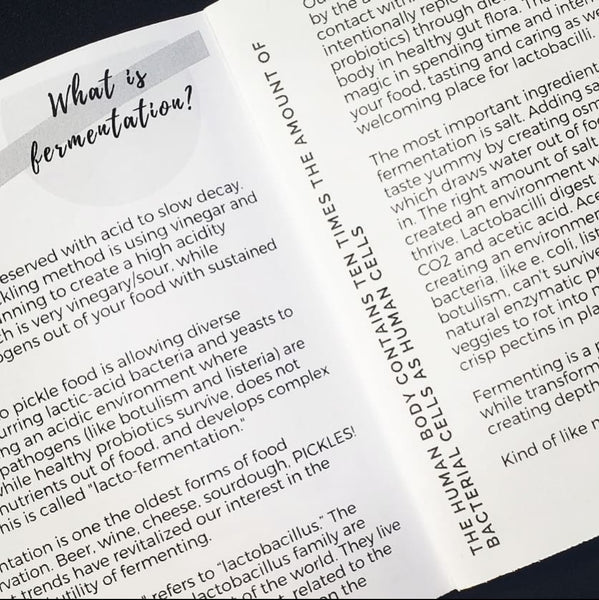 What is
fermentation?
eserved with acid to slow decay.
kling method is using vinegar and
nning to create a high acidity
ch is very vinegary/sour, while
ogens out of your food with sustained
o pickle food is allowing diverse
urring lactic-acid bacteria and yeasts to
ng an acidic environment where
pathogens (like botulism and listeria) are
while healthy probiotics survive, does not
nutrients out of food, and develops complex
his is called "lacto-fermentation."
ntation is one the oldest forms of food
rvation. Beer, wine, cheese, sourdough, PICKLES!
t trends have revitalized our interest in the
utility of fermenting.
refers to "lactobacillus." The
lactobacillus family are
of the world. They live
related to the
on the
THE HUMAN BODY CONTAINS TEN TIMES THE AMOUNT OF
BACTERIAL CELLS AS HUMAN CELLS
by the a
contact with
intentionally replic
probiotics) through die
body in healthy gut flora. The
magic in spending time and inten
your food, tasting and caring as we
welcoming place for lactobacilli.
The most important ingredient
fermentation is salt. Adding sa
taste yummy by creating osm
which draws water out of foo
in. The right amount of salt
created an environment w
thrive. Lactobacilli digest
CO2 and acetic acid. Ace
creating an environmen
bacteria, like e. coli, list
botulism, can't survive
natural enzymatic pr
veggies to rot into
crisp pectins in pla
Fermenting is a p
while transform
creating depth
Kind of like m